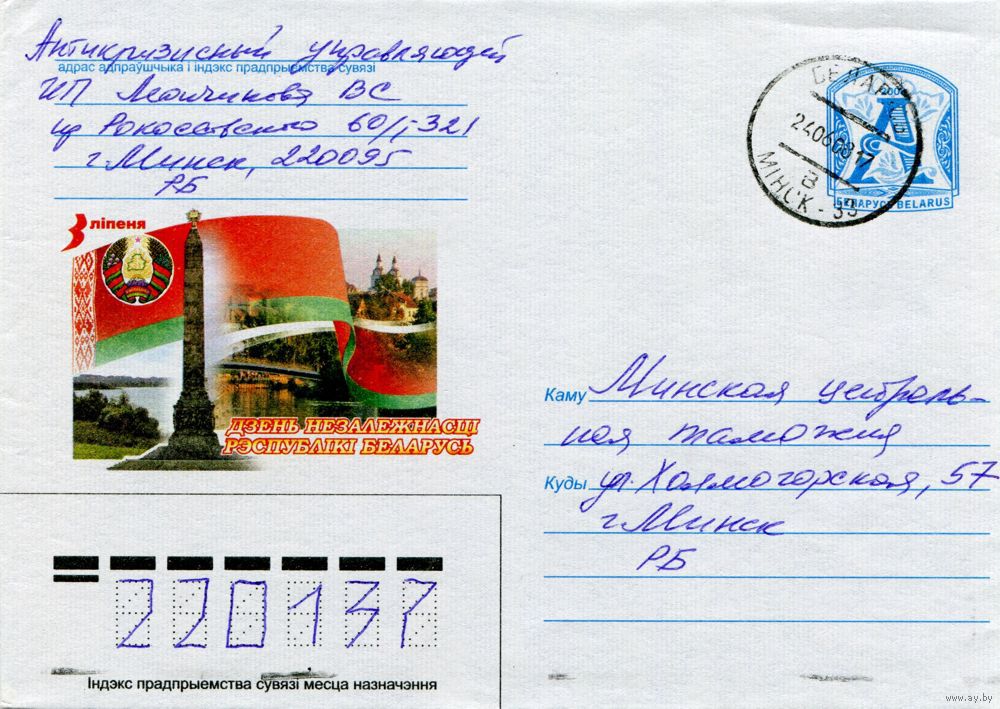 Антикризисный управляющий
адрас адпраўшчыка і індэкс прадпрыемства сувязі
ИП Мончикова ВС
пр Рокоссовского 60/1-321
г Минск, 220095
РБ
БЕЛАРУСЬ
24060817
а
МІНСК - 33
А
БЕЛАРУСЬ BELARUS
3 ліпеня
ДЗЕНЬ НЕЗАЛЕЖНАСЦІ
РЭСПУБЛІКІ БЕЛАРУСЬ
Каму Минская централь-
ная таможня
Куды ул. Холмогорская, 57
г Минск
РБ
220137
Індэкс прадпрыемства сувязі месца назначэння
www.ay.by